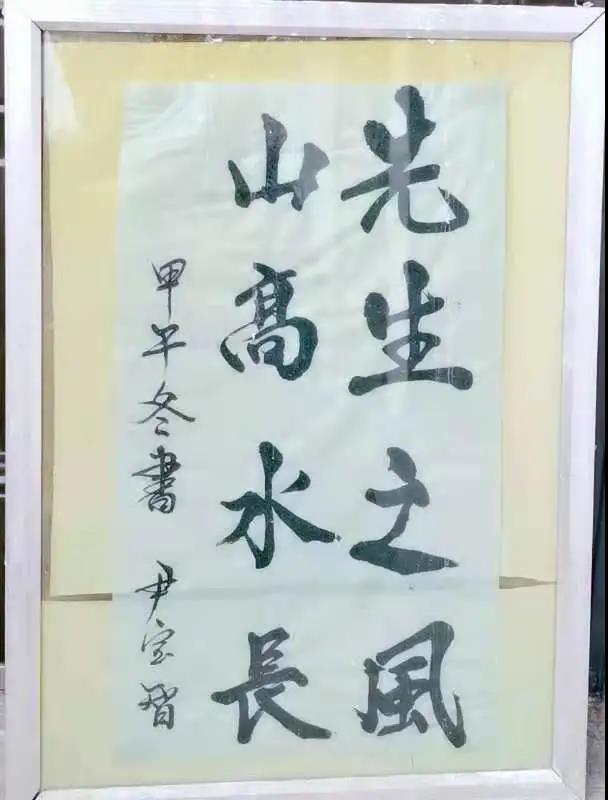 先生之風
山髙水長
甲午冬書 尹宝智